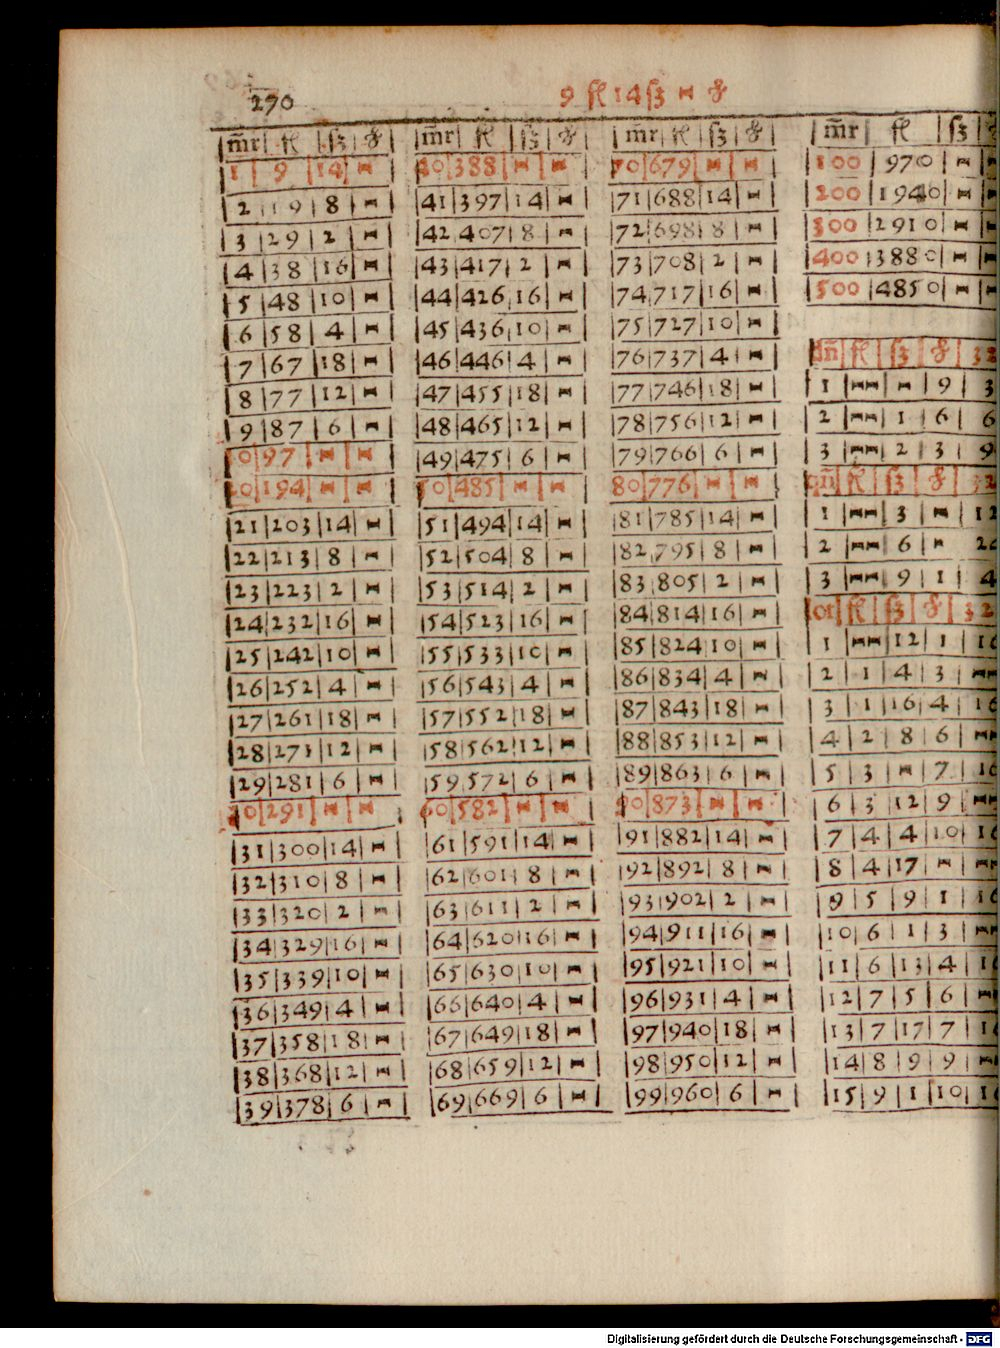 270
9 fl 14 ß – ₰
m̄r fl ß ₰
1 9 14 –
2 19 8 –
3 29 2 –
4 38 16 –
5 48 10 –
6 58 4 –
7 67 18 –
8 77 12 –
9 87 6 –
10 97 – –
20 194 – –
21 203 14 –
22 213 8 –
23 223 2 –
24 232 16 –
25 242 10 –
26 252 4 –
27 261 18 –
28 271 12 –
29 281 6 –
30 291 – –
31 300 14 –
32 310 8 –
33 320 2 –
34 329 16 –
35 339 10 –
36 349 4 –
37 358 18 –
38 368 12 –
39 378 6 –
m̄r fl ß ₰
40 388 – –
41 397 14 –
42 407 8 –
43 417 2 –
44 426 16 –
45 436 10 –
46 446 4 –
47 455 18 –
48 465 12 –
49 475 6 –
50 485 – –
51 494 14 –
52 504 8 –
53 514 2 –
54 523 16 –
55 533 10 –
56 543 4 –
57 552 18 –
58 562 12 –
59 572 6 –
60 582 – –
61 591 14 –
62 601 8 –
63 611 2 –
64 620 16 –
65 630 10 –
66 640 4 –
67 649 18 –
68 659 12 –
69 669 6 –
m̄r fl ß ₰
70 679 – –
71 688 14 –
72 698 8 –
73 708 2 –
74 717 16 –
75 727 10 –
76 737 4 –
77 746 18 –
78 756 12 –
79 766 6 –
80 776 – –
81 785 14 –
82 795 8 –
83 805 2 –
84 814 16 –
85 824 10 –
86 834 4 –
87 843 18 –
88 853 12 –
89 863 6 –
90 873 – –
91 882 14 –
92 892 8 –
93 902 2 –
94 911 16 –
95 921 10 –
96 931 4 –
97 940 18 –
98 950 12 –
99 960 6 –
m̄r fl ß
100 970 – –
200 1940 – –
300 2910 – –
400 3880 – –
500 4850 – –
dn̄ fl ß ₰ 32
1 – – 9 3
2 – 1 6 6
3 – 2 3 9
qn̄ fl ß ₰ 32
1 – 3 – 12
2 – 6 – 24
3 – 9 1 4
lot fl ß ₰ 32
1 – 12 1 16
2 1 4 3 –
3 1 16 4 16
4 2 8 6 –
5 3 – 7 16
6 3 12 9 –
7 4 4 10 16
8 4 17 – –
9 5 9 1 16
10 6 1 3 –
11 6 13 4 16
12 7 5 6 –
13 7 17 7 16
14 8 9 9 –
15 9 1 10 16
Digitalisierung gefördert durch die Deutsche Forschungsgemeinschaft - DFG